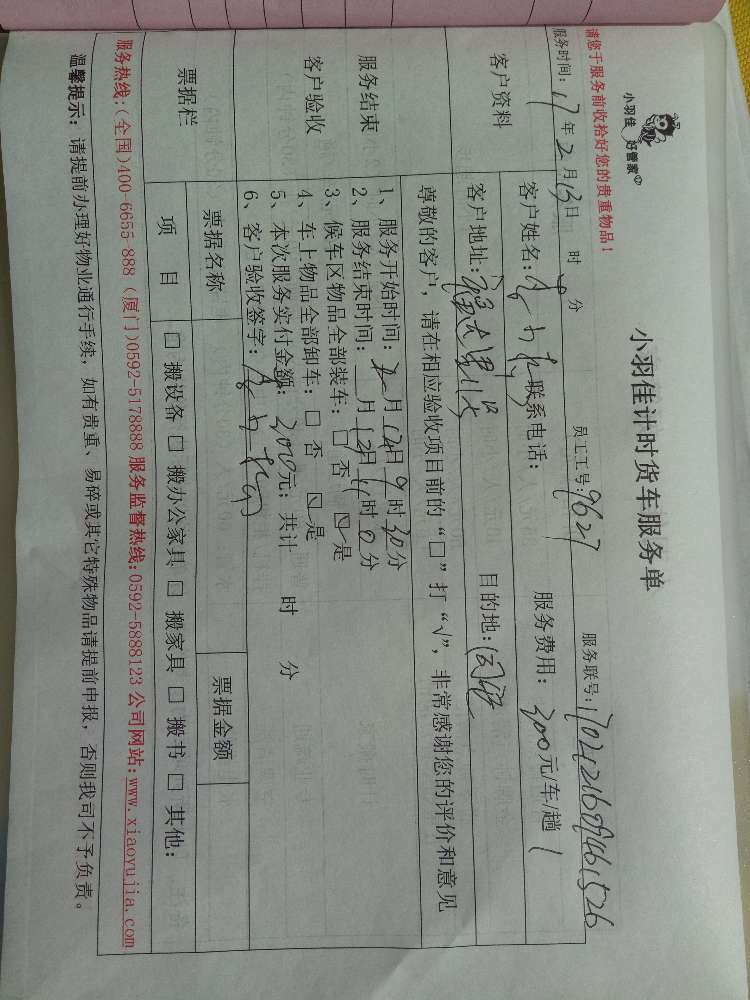 小羽佳 好管家
小羽佳计时货车服务单
请您于服务前收拾好您的贵重物品！
服务时间：17年2月13日 时 分 员工工号：9627 服务联号：
客户资料
客户姓名： 联系电话： 服务费用：200元/车/趟
客户地址： 目的地：
尊敬的客户，请在相应验收项目前的“□”打“√”，非常感谢您的评价和意见
服务结束
客户验收
1、服务开始时间： 月 日9时30分
2、服务结束时间： 月 日11时0分
3、候车区物品全部装车：□否 ☑是
4、车上物品全部卸车：□否 ☑是
5、本次服务实付金额：200元；共计 时 分
6、客户验收签字：
票据栏
票据名称 票据金额
项目 □搬设备 □搬办公家具 □搬家具 □搬书 □其他：
服务热线：(全国)400-6655-888 (厦门)0592-5178888 服务监督热线：0592-5888123 公司网站：www.xiaoyujia.com
温馨提示：请提前办理好物业通行手续，如有贵重、易碎或其它特殊物品请提前申报，否则我司不予负责。